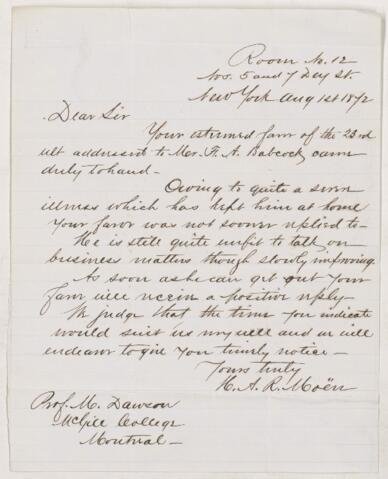 Room No. 12
Nos. 5 and 7 Dey St.
New York Aug 1st 1872
Dear Sir
Your esteemed favor of the 23rd
ult addressed to Mr. F. A. Babcock came
duly to hand -
Owing to quite a severe
illness which has kept him at home
Your favor was not sooner replied to -
He is still quite unfit to talk on
business matters though slowly improving.
As soon as he can get out Your
favor will receive a positive reply -
We judge that the time you indicate
would suit us very well and we will
endeavor to give you timely notice -
Yours truly
H. A. R. Moën
Prof. M. Dawson
McGill College
Montreal -